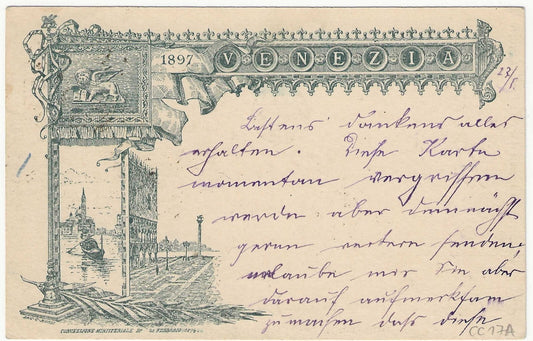 1897 VENEZIA
23/5.
Bestens dankend alles
erhalten. Diese Karte
momentan vergriffen
werde aber demnächst
gerne weitere senden,
erlaube mir Sie aber
darauf aufmerksam
zu machen daß diese
CC 17A
CONCESSIONE MINISTERIALE